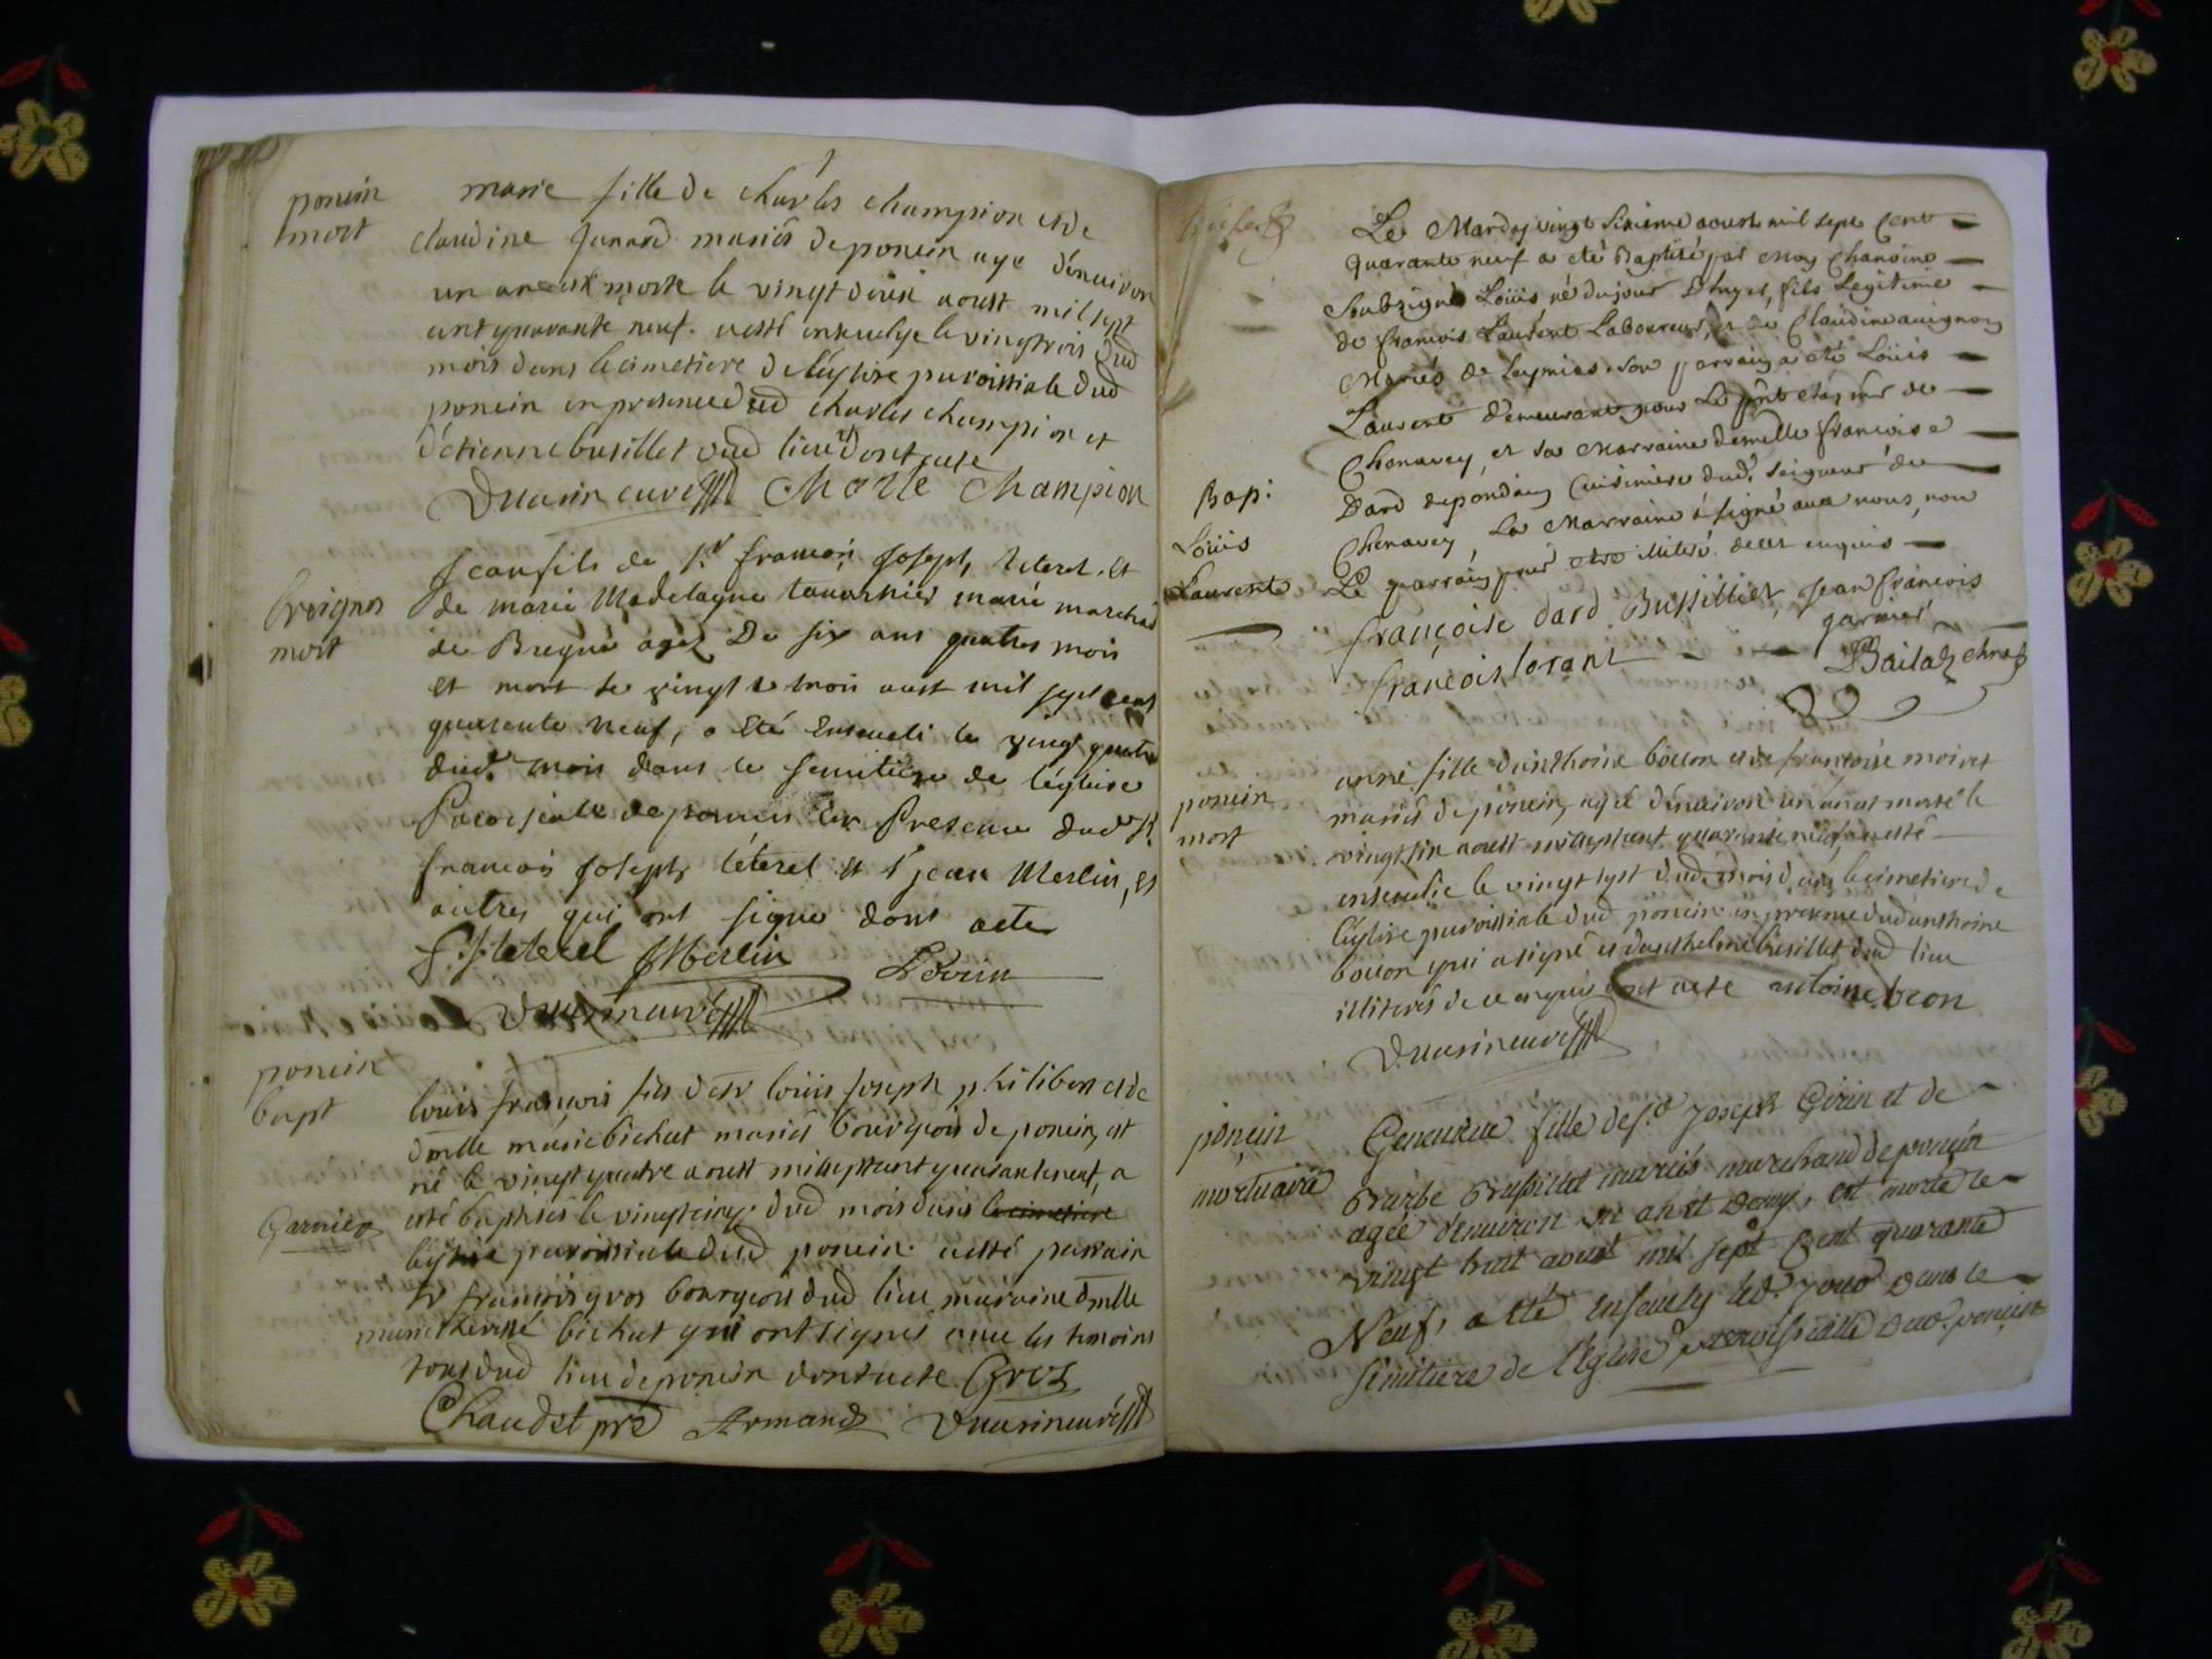 ponein
mort
marie fille de charles champion et de
claudine Junard mariés de ponein agé dénuiron
un an est morte le vingt deux aoust mil sept
cent quarante neuf. a esté enseuelye le vingtrois dud
mois dans le cimetiere de léglise paroissiale dud
ponein en presence dud charles champion et
détienne busillet dud lieu dont acte
Charle Champion
mort
Jean fils de Sr. francois Joseph leterel, et
de marie Madelayne tauarnier marié marchād
de agez De six ans quatres mois
et mort le vingt e trois aust mil sept cent
quarente neuf, a été Enseueli le vingt quatre
dud. mois dans le semitiere de léglise
Paroisialle de ponein En Presence dud Sr.
francois Joseph léterel et Sr jean Merlin, et
autres qui ont signe dont acte
F. J leterel J Merlin
ponein
bapt
louis francois fils de sr louis joseph philibert et de
dmlle marie bichat mariés bourgeois de ponein, est
né le vingt quatre aoust mil sept cent quarante neuf, a
Garnier
esté baptisés le vingt cinq dud mois dans le cimetiere
leglise paroissiale dud ponein. a esté parrain
sr francois gros bourgeois dud lieu maraine dmlle
marie therese bichat qui ont signés auec les temoins
tous dud lieu de ponein dont acte Gros
Chaudet pre Armand
Le Mardy vingt sixieme aoust mil sept cent
quarante neuf a été Baptisé par moy Chanoine
Soubsigné Loüis né du jour , fils Legitime
de francois Laurent Laboureur, et de Claudine auignon
Mariés de Leymias. son parrain a été Loüis
Laurent demeurant pour Le sr de
Chenavey, et sa Marraine demlle francoise
Bap:
Dard depondain Cuisiniere dud. seigneur de
Loüis
Chenavey, La Marraine a signé auec nous, non
Laurent
Le parrain pour etre illiteré de ce enquis
françoise dard Bussillier Jean francois
garnier
françois lorant
ponein
mort
anne fille danthoine boüon et de francoise moiret
mariés de ponein, agée dénuiron un an est morte le
vingt six aoust mil sept cent quarante neuf, a esté
enseuelie le vingt sept dud mois dans le cimetiere de
léglise paroissiale dud ponein en presence dud anthoine
boüon qui a signé et danthelme busillet dud lieu
illiterés de ce enquis dont acte antoine beon
ponein
mortuaire
Geneuieue fille de sr. Joseph Girin et de
Barbe Bussillet mariés marchand de ponein
agée denuiron un an et Demy, est morte le
vingt huit aoust mil sept Cent quarante
Neuf, a été enseuely led. jour dans le
Simitiere de l'Eglise paroissialle dud. ponein